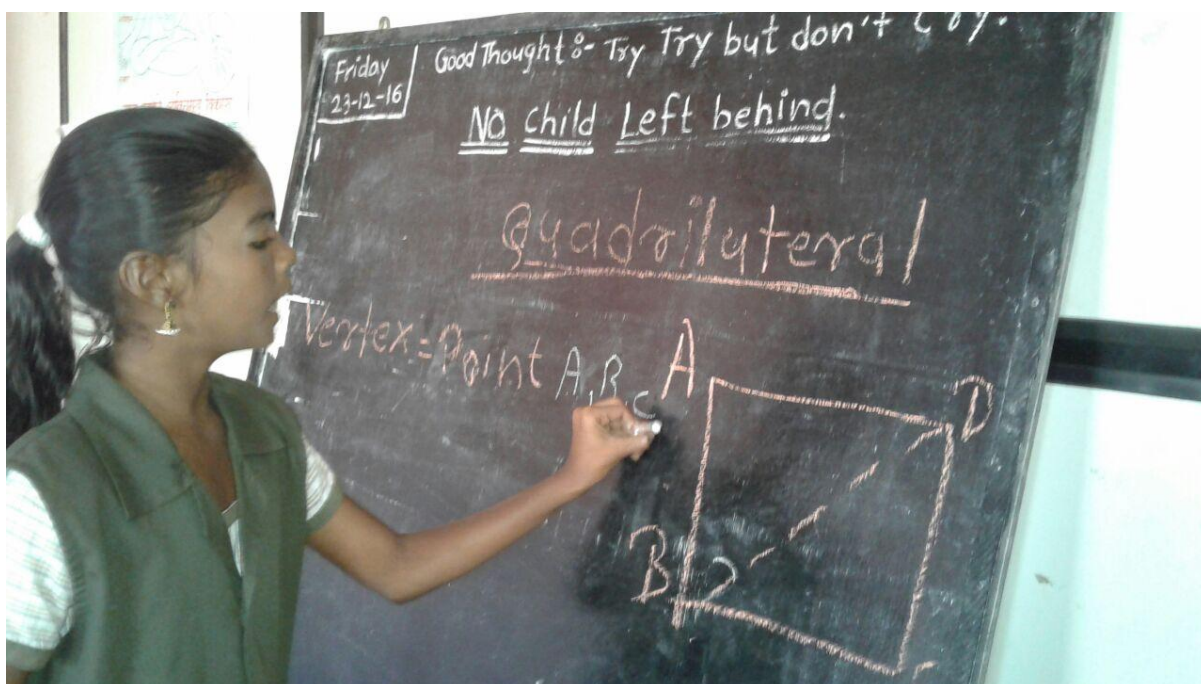 Friday
23-12-16
Good Thought :- Try Try but don't Cry.
No child Left behind.
Quadrilateral
Vertex = Point A, B, C
A
D
B